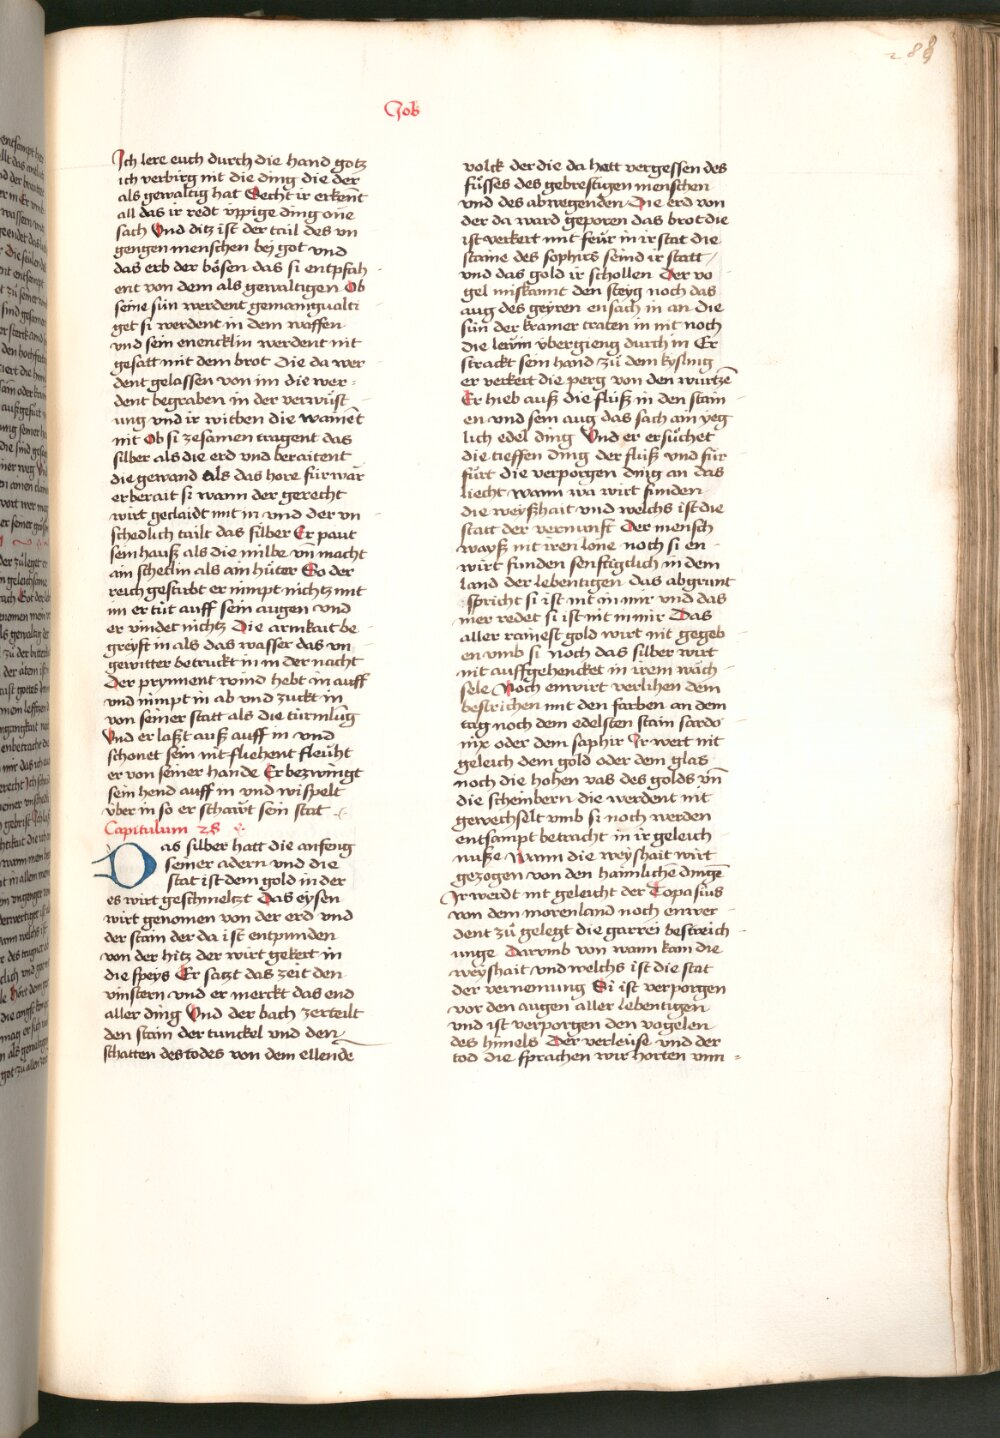 288
Job
Ich lere euch durch die hand gotz
ich verbirg nit die ding die der
als gewaltig hat Secht ir erkent
all das ir redt vppige ding one
sach Vnd ditz ist der tail des vn
gengen menschen bej got vnd
das erb der bösen das si entpfah
ent von dem als gewaltigen Ob
seine sün werdent gemanigualti
get si werdent in dem waffen
vnd sein enencklin werdent nit
gesatt mit dem brot Die da wer
dent gelassen von im die wer-
dent begraben in der verwüst
ung vnd ir witben die wainēt
nit Ob si zesamen tragent das
silber als die erd vnd beraitent
die gewand als das hore fürwar
er berait si wann der gerecht
wirt geclaidt mit in vnd der vn
schedlich tailt das silber Er paut
sein hauß als die milbe vñ macht
ain schetlin als ain hüter So der
reich gestirbt er nimpt nichtz mit
im er tüt auff sein augen vnd
er vindet nichtz Die armkait be
greyft in als das wasser das vn
gewitter betruckt in in der nacht
Der prynnent wind hebt in auff
vnd nimpt in ab vnd zuckt in
von seiner statt als die türmlüg
Vnd er laßt auß auff in vnd
schonet sein nit fliehent fleüht
er von seiner hande Er bezwingt
sein hend auff in vnd wispelt
über in so er schawt sein stat
Capitulum 28
Das silber hatt die anfeng
seiner adern vnd die
stat ist dem gold in der
es wirt geschmeltzt Das eysen
wirt genomen von der erd vnd
der stain der da ist entpunden
von der hitz der wirt gekert in
die speys Er satzt das zeit den
vinstern vnd er merckt das end
aller ding Vnd der bach zerteilt
den stain der tunckel vnd den
schatten des todes von dem ellende
volck der die da hett vergessen des
füsses des gebrestigen menschen
vnd des abwegenden Die erd von
der da ward geporen das brot die
ist verkert mit feür in ir stat die
staine des saphirs seind ir statt
vnd das gold ir schollen Der vo
gel miskannt den steyg noch das
aug des geyren ensach in an die
sün der kramer traten in nit noch
die lewin übergieng durch in Er
strackt sein hand zü dem kysling
er verkert die perg von den wurtzē
Er hieb auß die flüß in den stain
en vnd sein aug das sach ain yeg
lich edel ding Vnd er ersüchet
die tieffen ding der flüß vnd für
fürt die verporgen ding an das
liecht wann wa wirt funden
die weyßhait vnd welchs ist die
statt der vernunft Der mensch
wayß nit iren lone noch si en
wirt funden senftigklich in dem
land der lebentigen das abgrunt
spricht si ist nit in mir vnd das
mer redet si ist nit in mir Das
aller rainest gold wirt nit gegeb
en vmb si noch das silber wirt
nit auffgehencket in irem wäch
sele Noch enwirt verlihen dem
bestrichen mit den farben an dem
tag noch dem edelsten stain sardo
nix oder dem saphir Ir wert nit
geleich dem gold oder dem glas
noch die hohen vas des golds vñ
die scheinbern die werdent nit
gewechselt vmb si noch werden
entsampt betracht in ir geleich
nuße Wann die weyshait wirt
gezogen von den haimlichē dingē
Ir werdt nit geleicht der Topasius
von dem morenland noch enwer
dent zü gelegt die garrei bestreich
unge Darumb von wann kam die
weyshait vnd welchs ist die stat
der vernemung Si ist verporgen
vor den augen aller lebentigen
vnd ist verporgen den vogelen
des himels Der verleüse vnd der
tod die sprachen wir horten vnn-